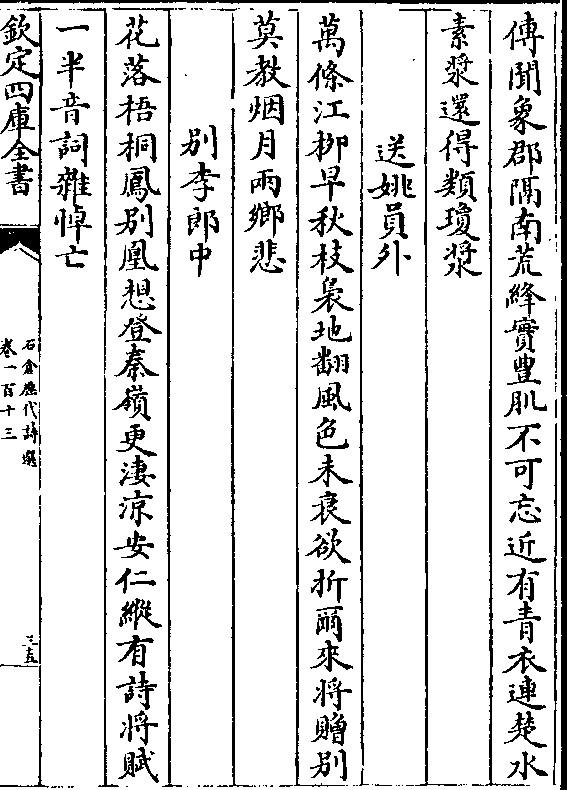 傳聞象郡隔南荒絳實豐肌不可忘近有青衣連楚水
素漿還得類瓊漿
送姚員外
萬條江柳早秋枝裊地翻風色未衰欲折爾來將贈别
莫教烟月兩鄉悲
别李郎中
花落梧桐鳳别凰想登秦嶺更淒涼安仁縱有詩將賦
一半音詞雜悼亡
欽定四庫全書
石倉歷代詩選
卷一百十三
三五